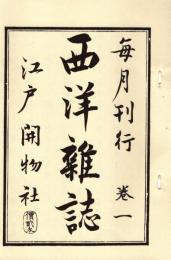 毎月刊行 卷一
西洋雜誌
江戸 開物社